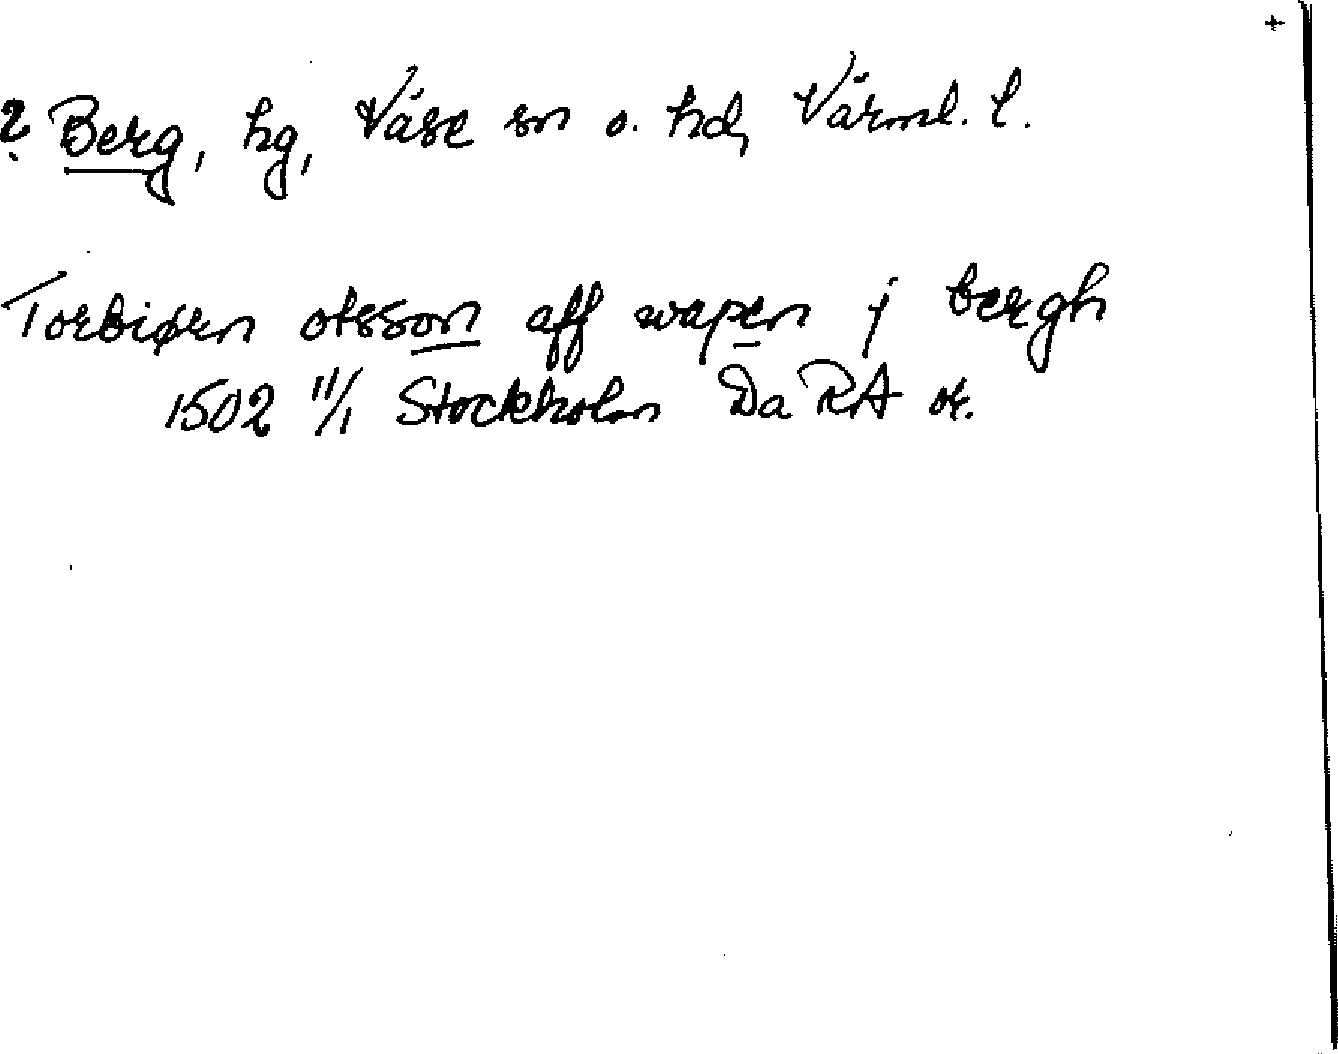 +
? Berg, hg, Väse sn o. hd, Värml. l.
Torbiørn otsson aff wapen j bergh
1502 11/1 Stockholm Da RA or.